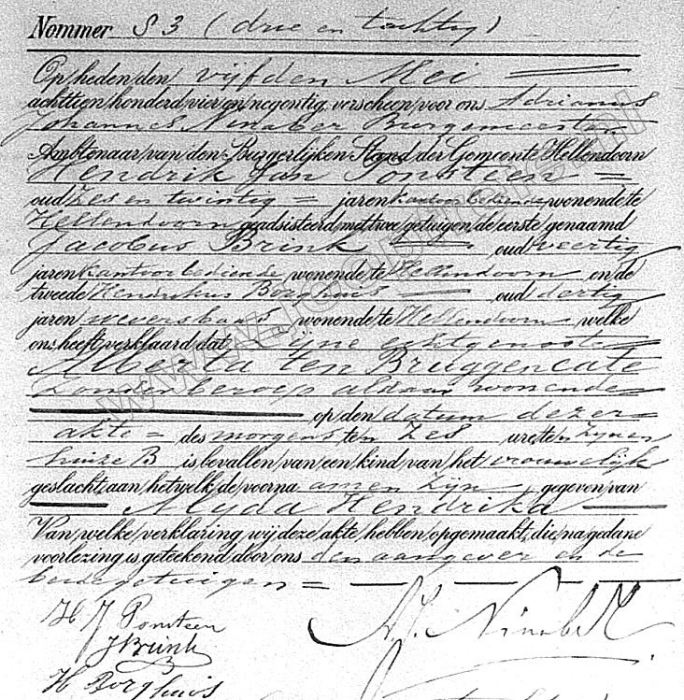 Nommer 83 (drie en tachtig)
Op heden den vijfden Mei
achttien honderd vier en negentig, verscheen voor ons Adrianus
Johannes Ninaber Burgemeester
Ambtenaar van den Burgerlijken Stand der Gemeente Hellendoorn
Hendrik Jan Ponsteen
oud zes en twintig jaren kantoorbediende wonende te
Hellendoorn geadsisteerd met twee getuigen, de eerste genaamd
Jacobus Brink oud veertig
jaren kantoorbediende wonende te Hellendoorn en de
tweede Hendrikus Borghuis oud dertig
jaren weversbaas wonende te Hellendoorn welke
ons heeft verklaard dat zijne echtgenoote
Alberta ten Bruggencate
zonder beroep aldaar wonende
op den datum dezer
akte des morgens ten zes ure ten zijnen
huize B is bevallen van een kind van het vrouwelijk
geslacht, aan hetwelk de voorna amen zijn gegeven van
Alyda Hendrika
Van welke verklaring wij deze akte hebben opgemaakt, die, na gedane
voorlezing is geteekend door ons den aangever en de
beide getuigen
H J Ponsteen
J Brink
AJ. Ninaber
H Borghuis